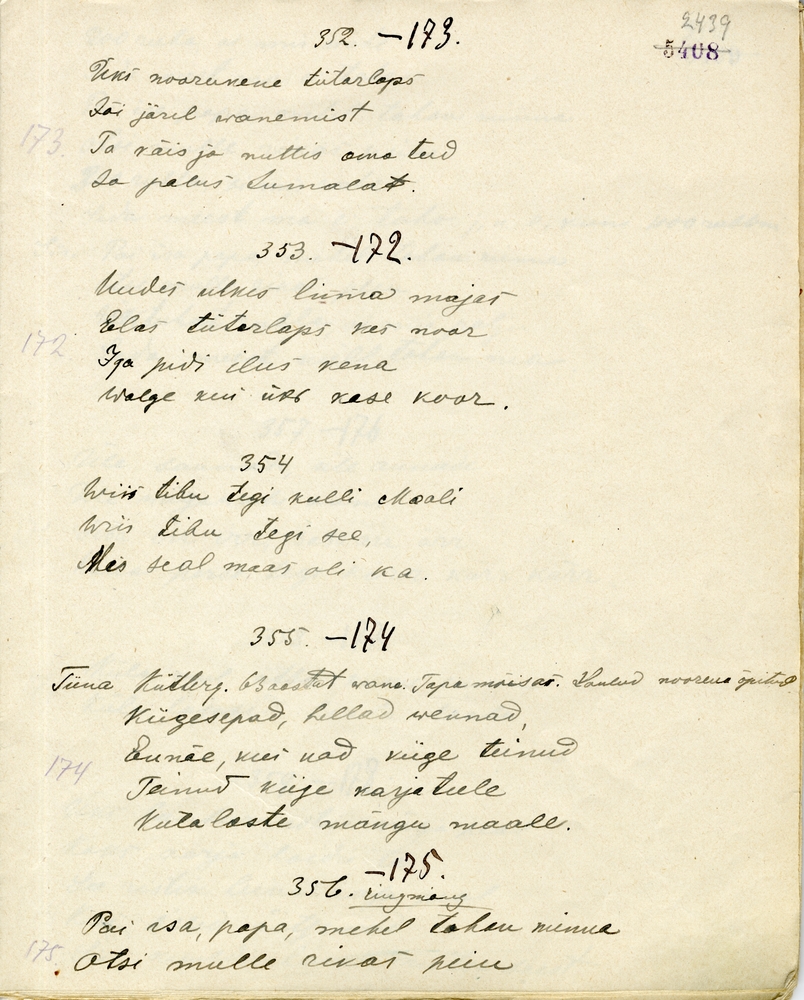 2439
5408
352. -173.
Üks noorukene tütarlaps
Jäi järel wanemist
173.
Ta käis ja nuttis oma teed
Ja palus Jumalat.
353. -172.
Uudes uhkes linna majas
Elas tütarlaps kes noor
172
Iga pidi ilus kena
Walge kui üks kase koor.
354
Wiis tibu tegi kulli Maali
Wiis tibu tegi see,
Mis seal maas oli ka.
355. -174
Tiina Kütberg. 63 aastat wana. Tapa mõisas. noorena õpitud
Kiigesepad, hellad wennad,
Ennäe, kui nad kiige teinud
174
Teinud kiige karjateele
Kuta laste mängu maale.
-175.
356. ringmäng
Pai isa, papa, mehel tahan minna
175.
Otsi mulle rikas peiu